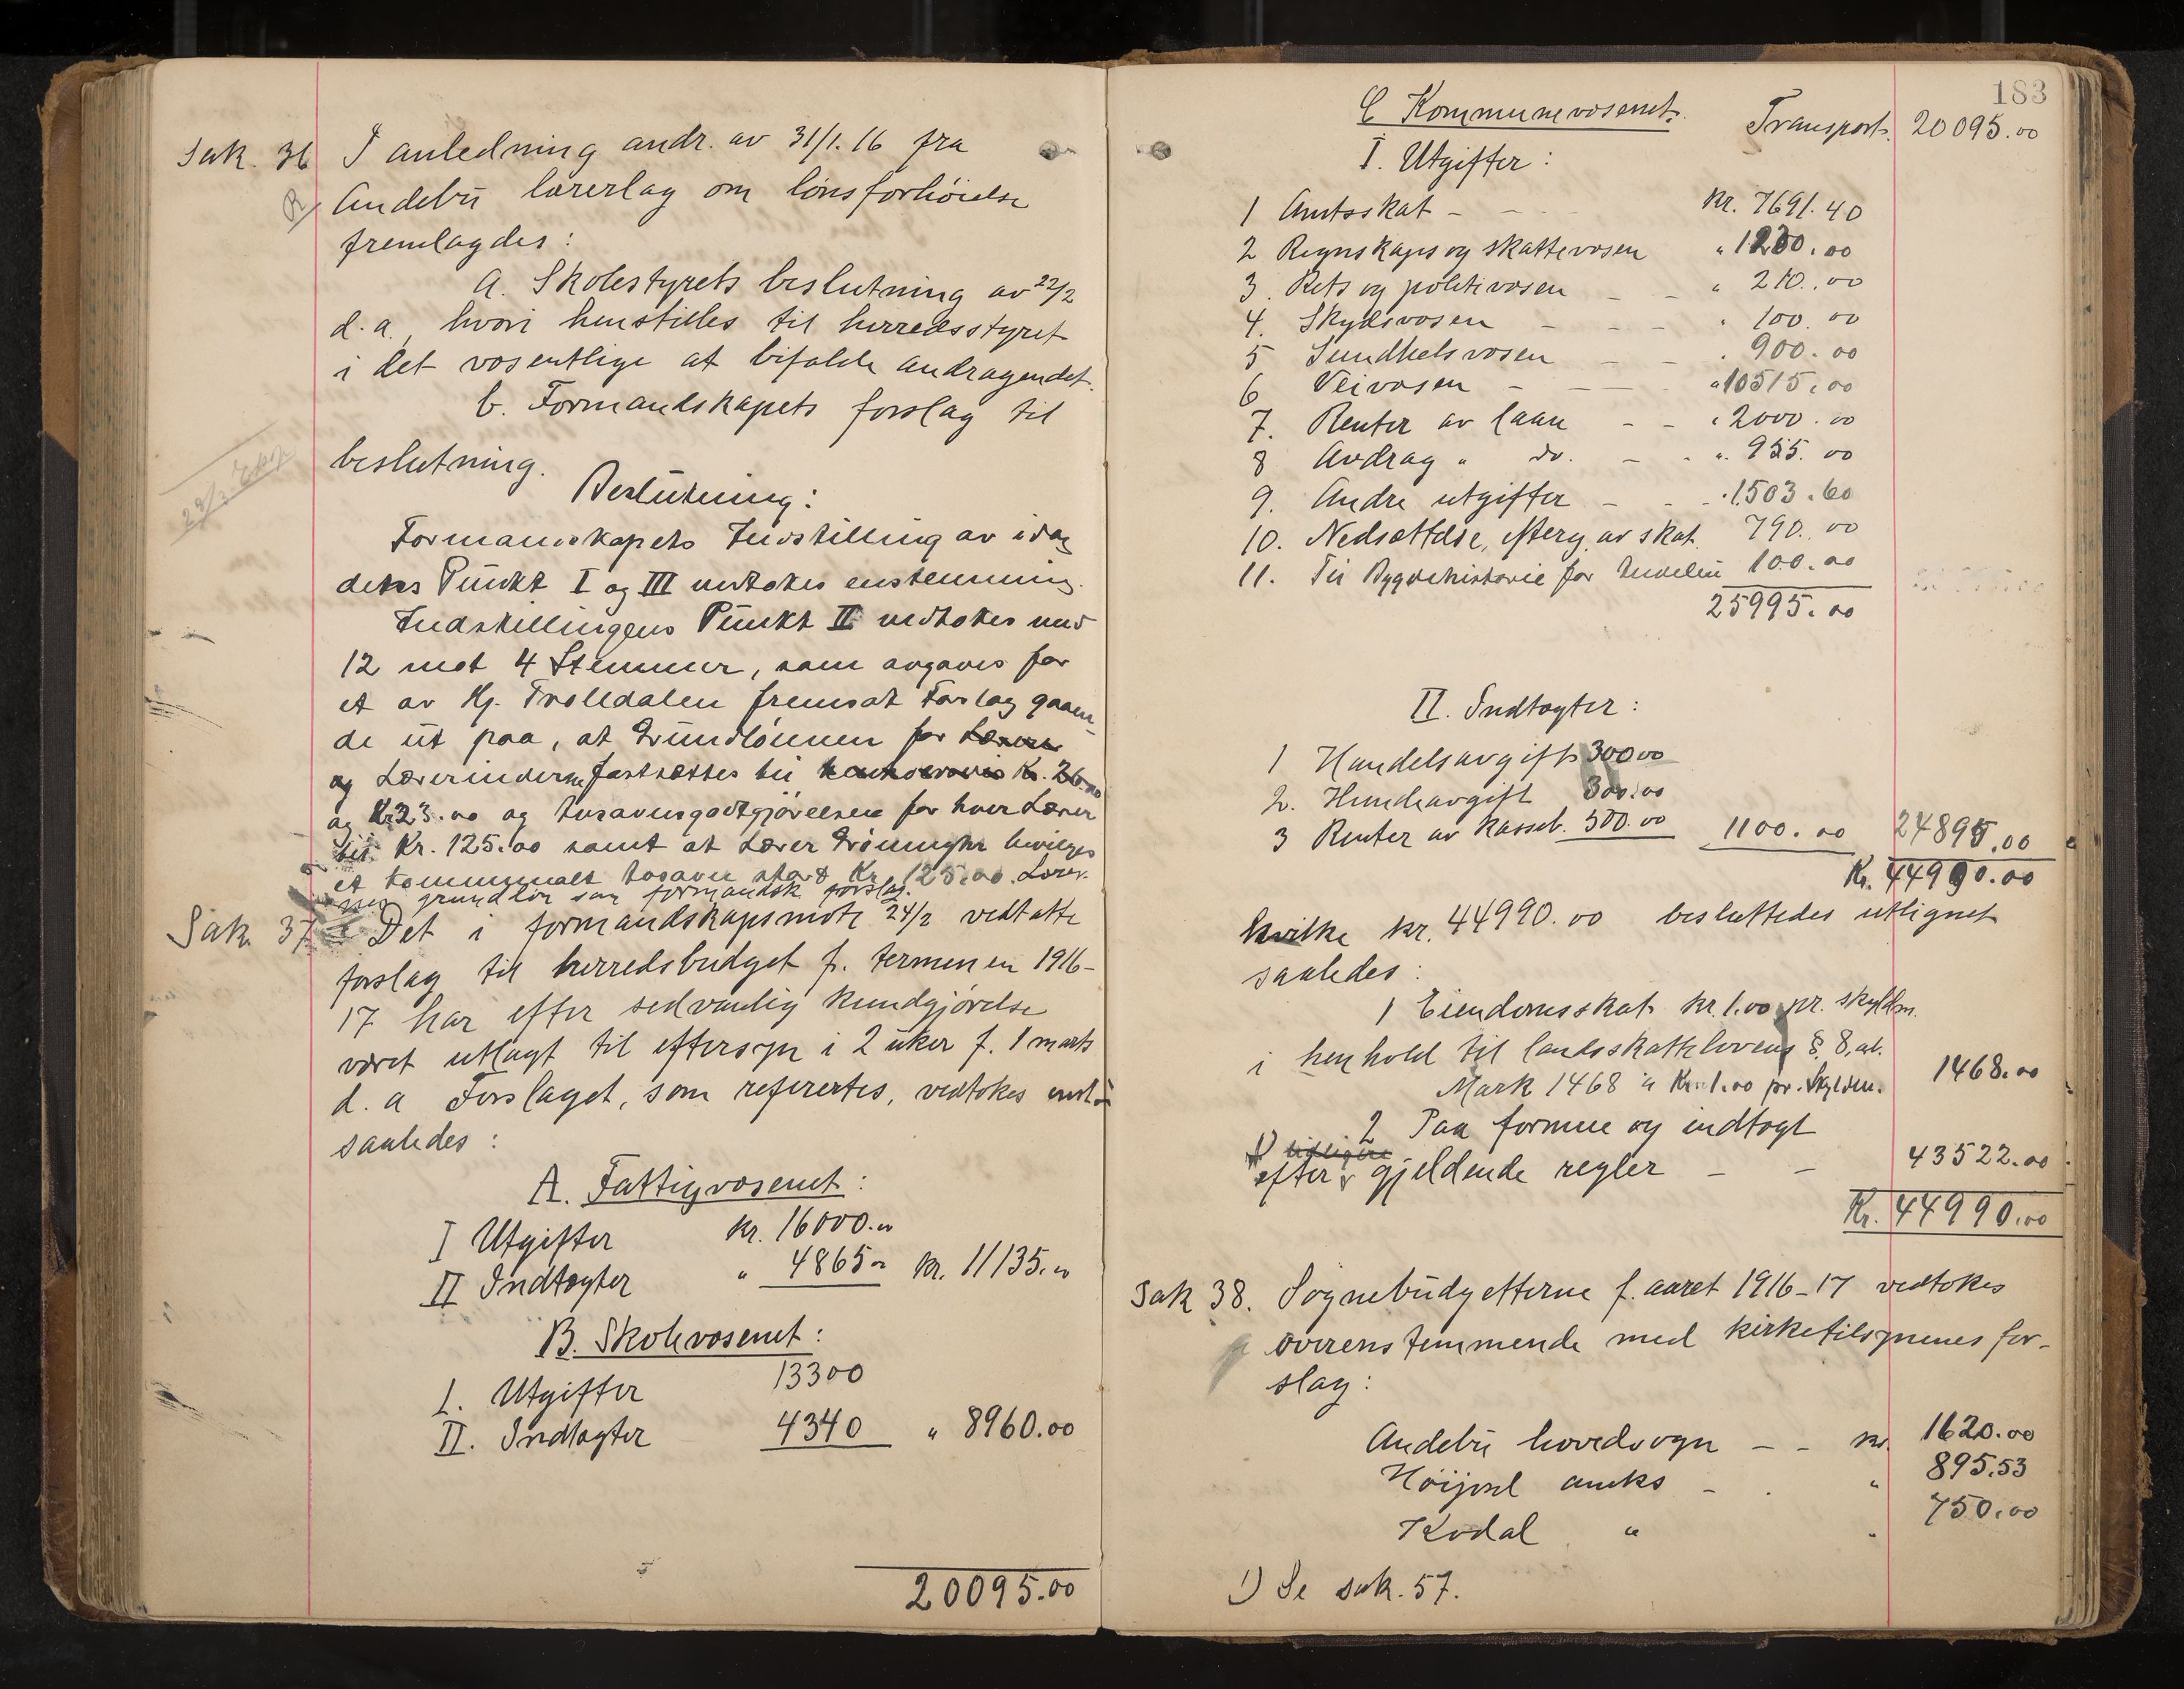 Sak. 36 I anledning andr. av 31/1. 16 fra
Andebu lærerlag om lønsforhøielse
fremlagdes:
a. Skolestyrets beslutning av 22/2
d.a., hvori henstilles til herredsstyret
i det væsentlige at bifalde andragendet.
b. Formandskapets forslag til
beslutning.
Beslutning:
Formandskapets Indstilling av idag
dets Punkt I og III vedtokes enstemmig.
Indstillingens Punkt II vedtokes med
12 mot 4 Stemmer, som avgaves for
et av Hj. Trolldalen fremsat Forslag gaaen-
de ut paa, at Grundlønnen for Lærere
og Lærerinderne fastsættes til henholdsvis Kr. 26.00
og Kr. 23.00 og Lusavnsgodtgjørelsen for hver Lærer
til Kr. 125.00 samt at Lærer bevilges
et kommunalt stort Kr. 125.00. Lærer-
nes grundløn som formandsk. forslag.
Sak. 37 Det i formandskapsmøte 24/2 vedtatte
forslag til herredsbudget f. terminen 1916-
17 har efter sedvanlig kundgjørelse
været utlagt til eftersyn i 2 uker f. 1 marts
d.a Forslaget, som referertes, vedtokes
saaledes:
A. Fattigvæsenet:
I Utgifter kr. 16000.00
II Indtægter " 4865.00 kr. 11135.00
B. Skolevæsenet:
I. Utgifter 13300
II. Indtægter 4340 " 8960.00
20095.00
183
C Kommunevæsenet. Transport. 20095.00
I. Utgifter:
1 Amtsskat - - Kr. 7691.40
2 Regnskaps og skattevæsen " 1230.00
3. Rets og politivæsen - - " 210.00
4. Skydsvæsen - - - " 100.00
5 Sundhetsvæsen - - . 900.00
6 Veivæsen - - - " 10515.00
7. Renter av laan - - " 2000.00
8 Avdrag " do. - - " 955.00
9. Andre utgifter - - - 1503.60
10. Nedsættelse, efterg. av skat. 790.00
11. Til Bygdehistorie for Andebu 100.00
25995.00
II. Indtægter:
1 Handelsavgift 300.00
2. Hundeavgift 300.00
3 Renter av kasseb. 500.00 1100.00 24895.00
Kr. 44990.00
hvilke kr. 44990.00 besluttedes utlignet
saaledes:
1 Eiendomsskat kr. 1.00 pr. skyldm.
i henhold til landsskattelovens §. 8, al.
Mark 1468 a Kr. 1.00 pr. Skyldm. 1468.00
2 Paa formue og indtægt
1) tidligere
efter gjeldende regler - - 43522.00
Kr. 44990.00
Sak 38. Sognebudgetterne f. aaret 1916-17 vedtokes
overensstemmende med kirketilsynenes for-
slag:
Andebu hovedsogn - - kr. 1620.00
Høijord anneks - . " 895.53
Kodal " " 750.00
1) Se sak. 57.